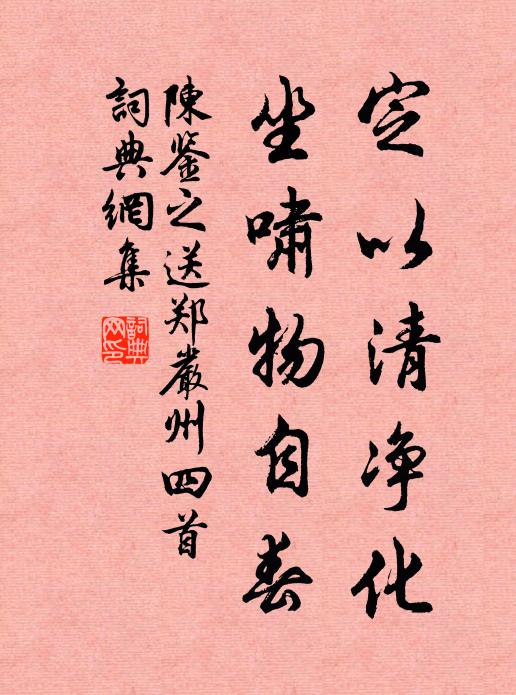 定以清净化
坐嘯物自春
陳鑒之送郑嚴州四首
詞典網集
詞典网印